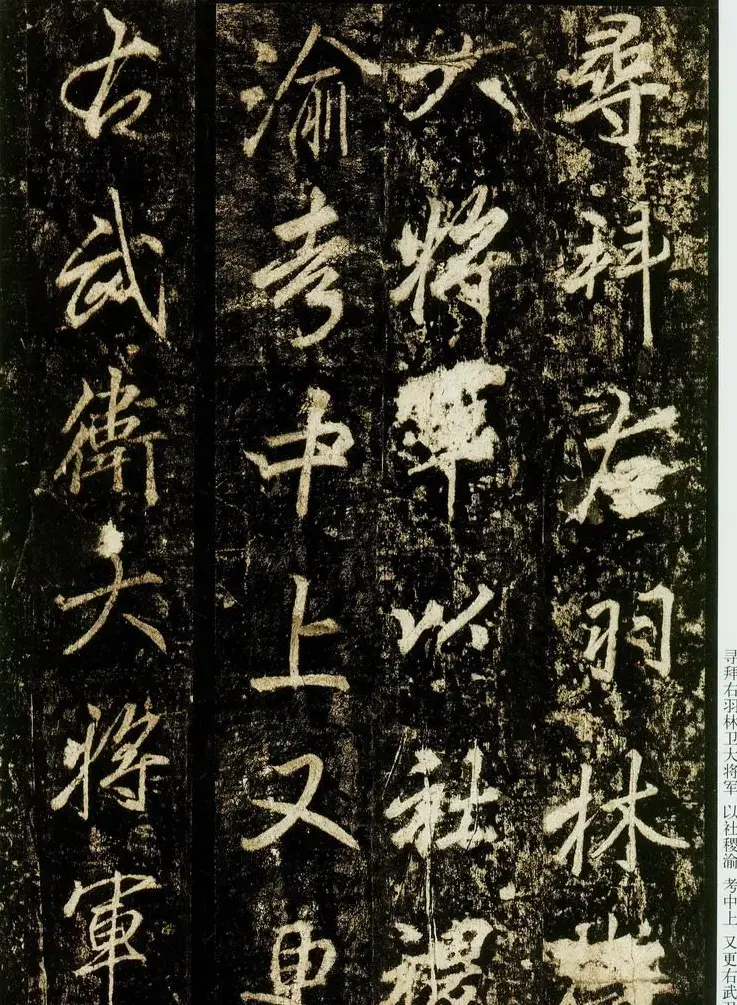 尋拜右羽林衛
大將軍以社稷
渝考中上又更
右武衛大將軍
寻拜右羽林卫大将军 以社稷渝 考中上 又更右武